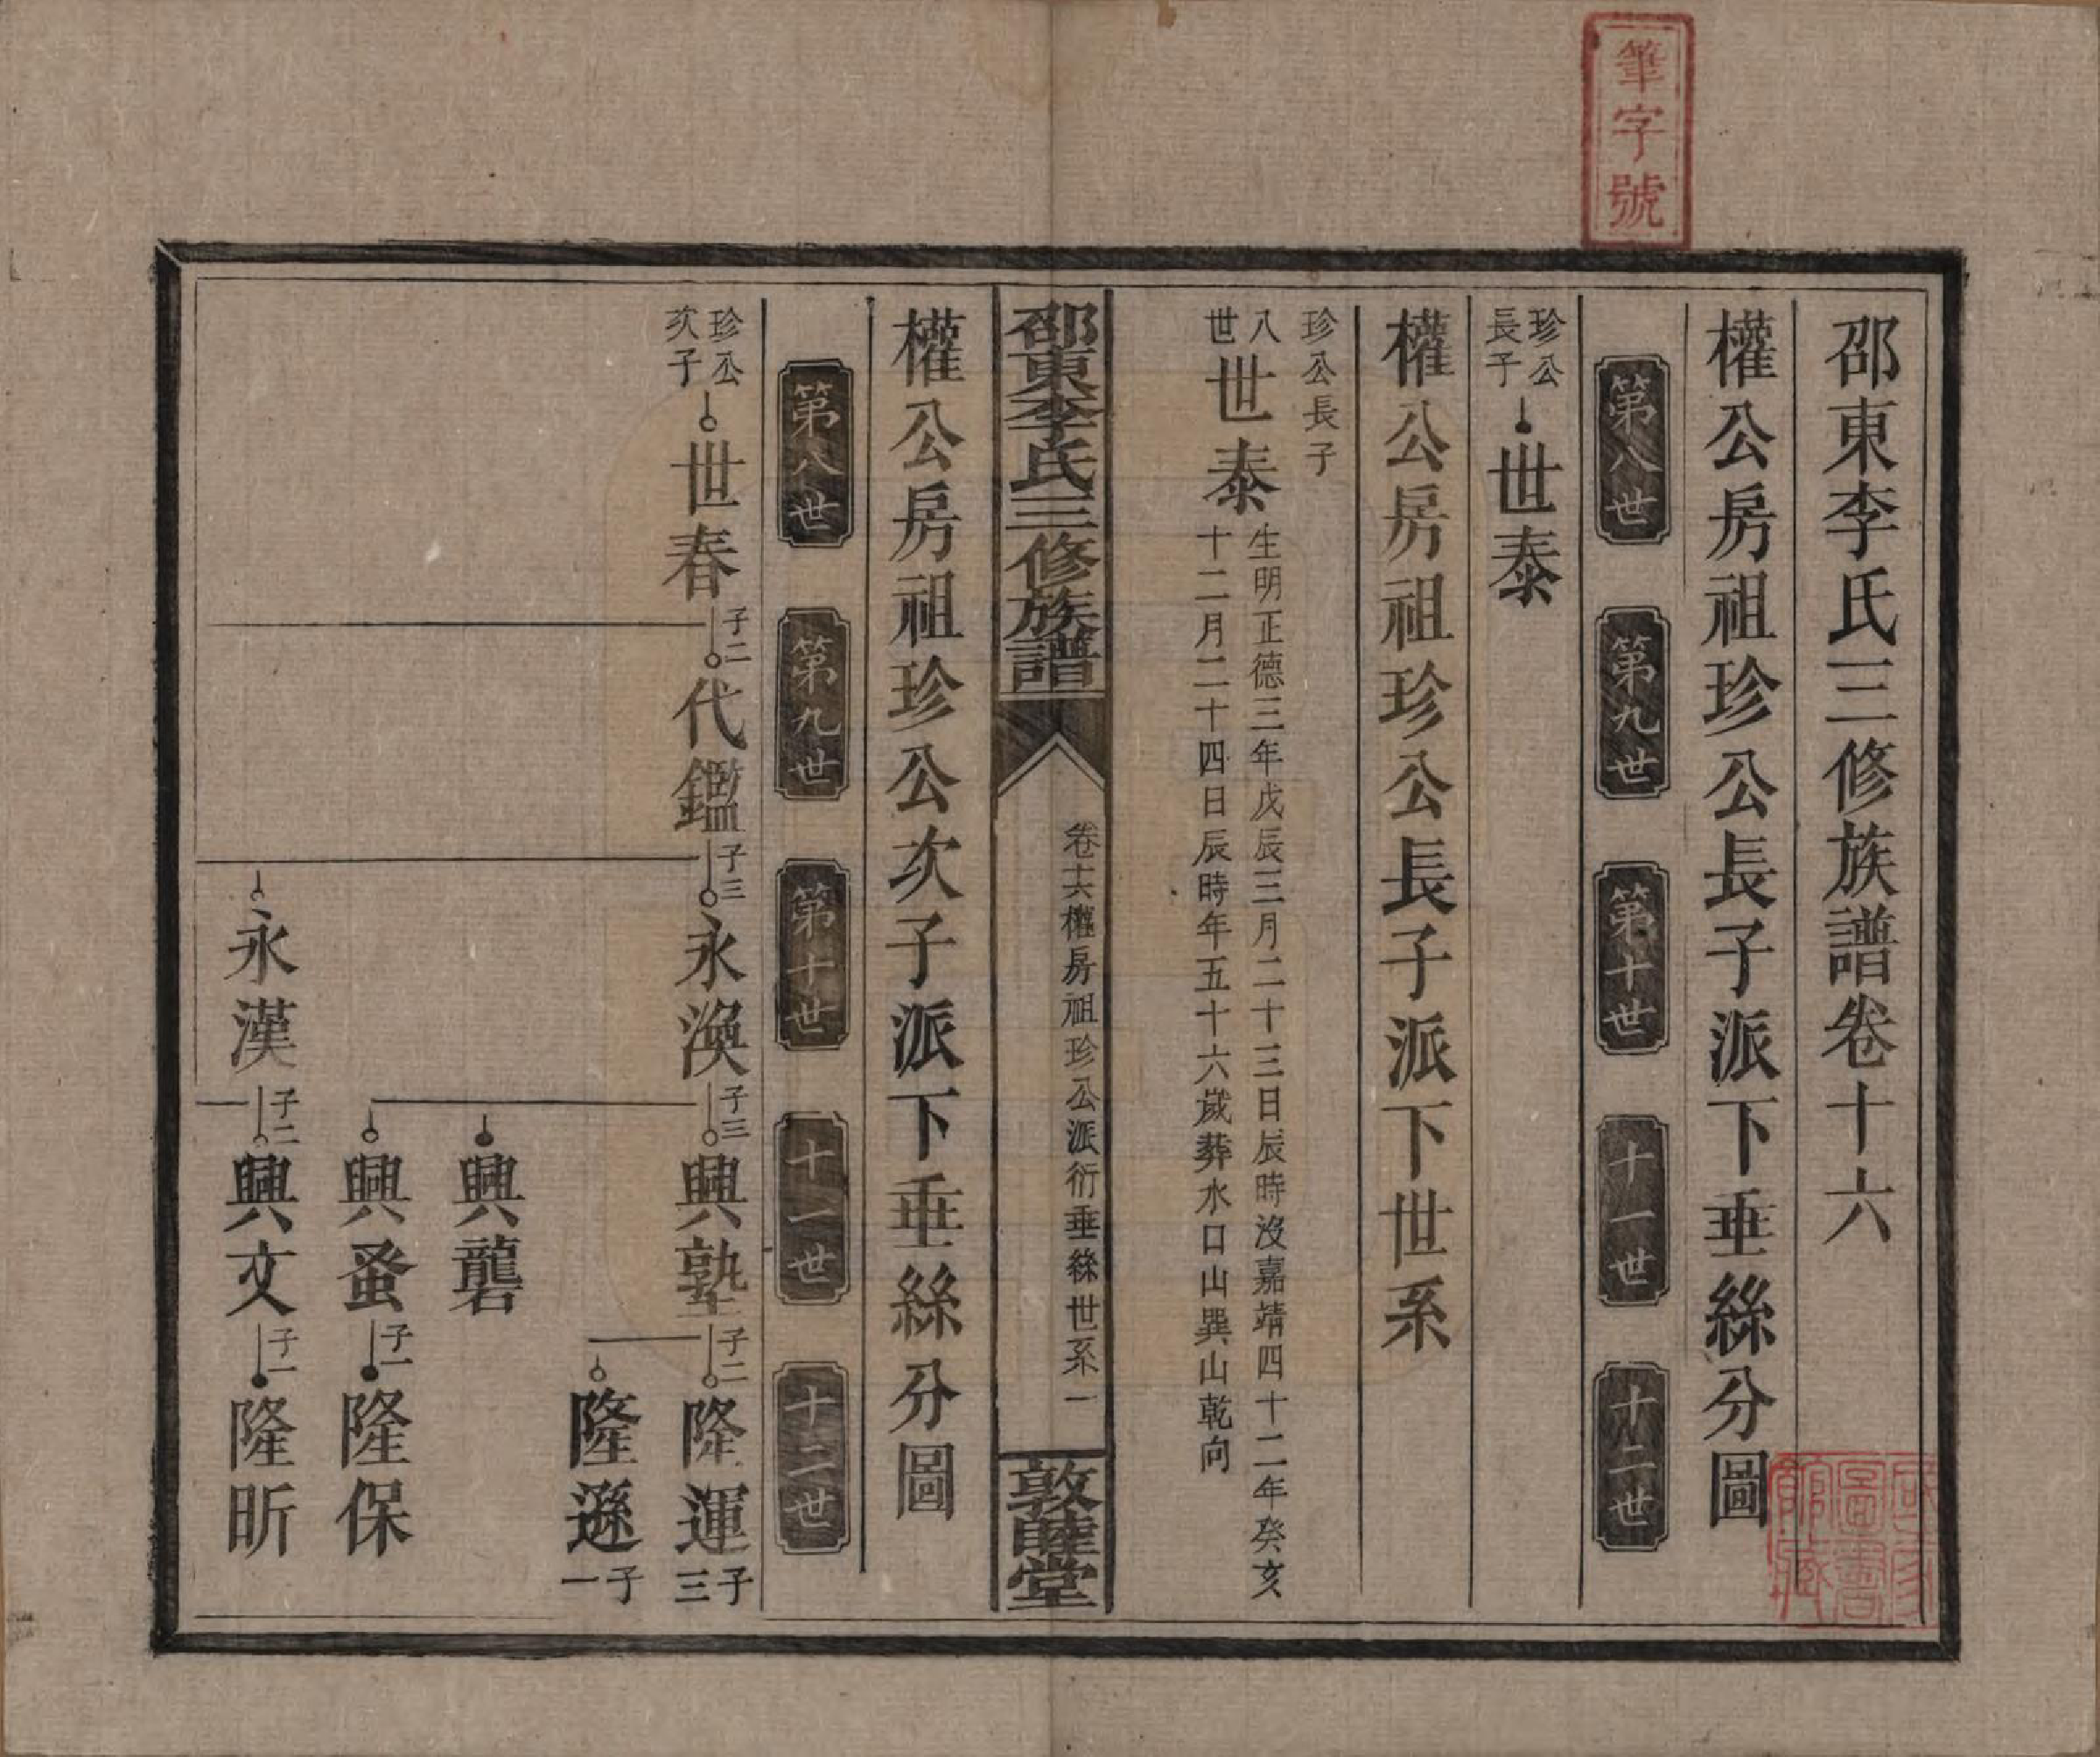 筆字號
邵東李氏三修族譜卷十六
權公房祖珍公長子派下垂絲分圖
第八世 第九世 第十世 十一世 十二世
珍公
長子
世泰
權公房祖珍公長子派下世系
珍公長子
八世
世泰
生明正德三年戊辰三月二十三日辰時沒嘉靖四十二年癸亥
十二月二十四日辰時年五十六歲葬水口山巽山乾向
邵東李氏三修族譜
卷十六權房祖珍公派衍垂絲世系一
敦睦堂
權公房祖珍公次子派下垂絲分圖
第八世 第九世 第十世 十一世 十二世
珍公
次子
世春
子二
代鑑
子三
永渙
子三
興塾
子二
隆運
子三
隆遜
子一
興礱
興蚤
子一
隆保
永漢
子二
興文
子一
隆昕
國家
圖書
館藏